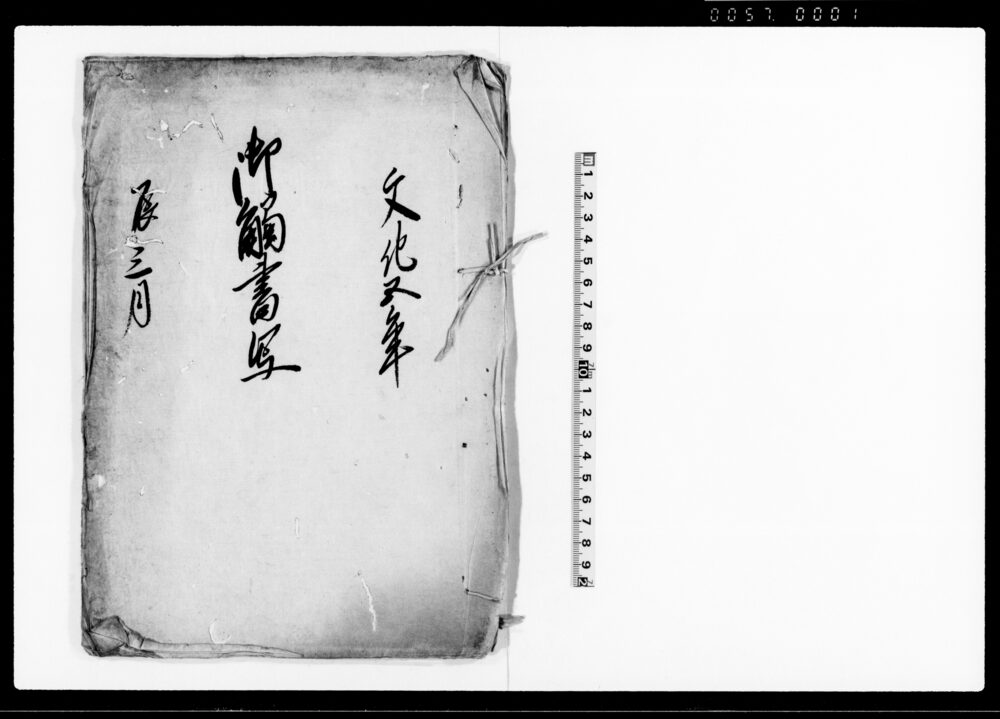 0057 0001
文化五年
御觸書写
辰三月
1 2 3 4 5 6 7 8 9 10 1 2 3 4 5 6 7 8 9 2